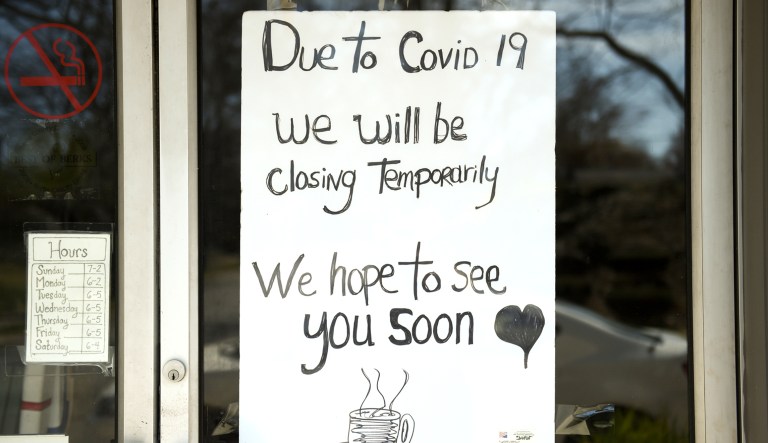 Due to Covid 19
We will be
closing Temporarily
We hope to see
you soon
Hours
Sunday 7-2
Monday 6-2
Tuesday 6-5
Wednesday 6-5
Thursday 6-5
Friday 6-5
Saturday 6-4